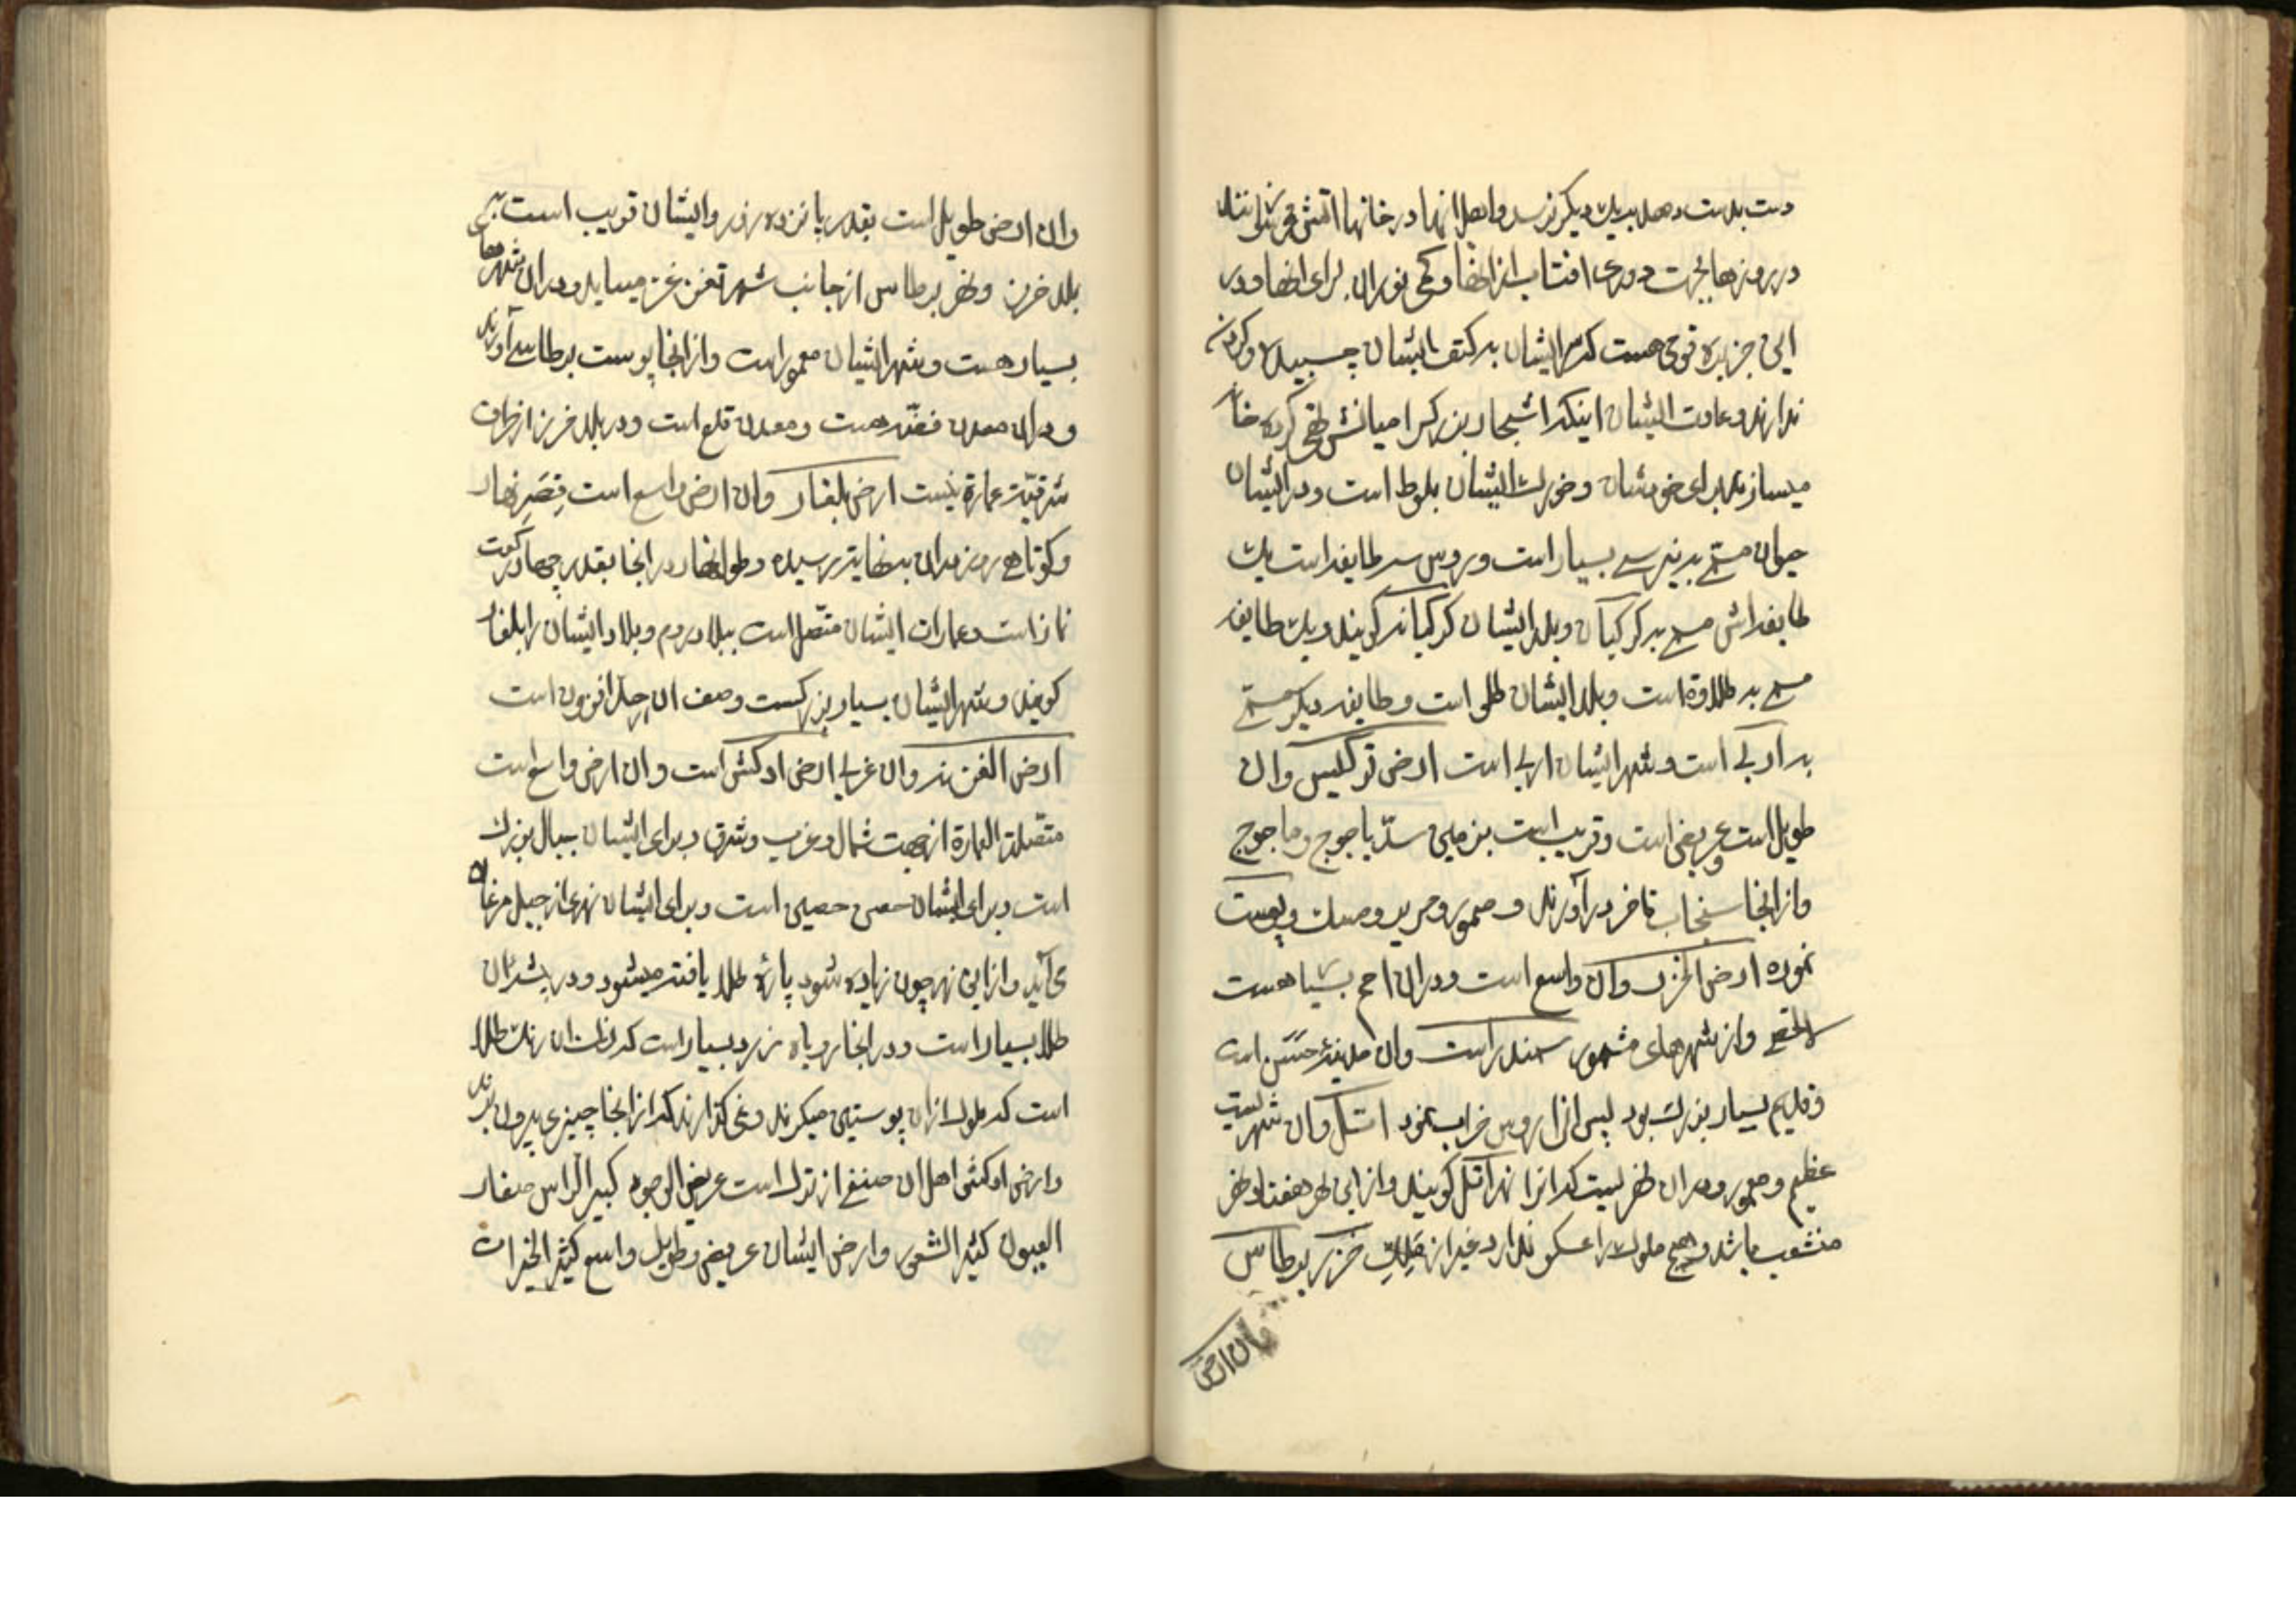 در روزها بجهت دوری افتاب از انها و کمی نور ان برای انها و در
این جزیره قومی هست که سر ایشان بر کتف ایشان چسبیده و کردن
ندارند و عادت ایشان اینکه اشجار بزرک را میانش تهی کرده خانه
میسازند برای خودشان و خورش ایشان بلوط است و در ایشان
حیوان مسمی به ببر بسیار است و روس سه طایفه است یک
طایفه اش مسمی به کرکیان و بلد ایشان کرکیانه کویند و یک طایفه
مسمی به طلاوة است و بلد ایشان طلی است و طایفه دیکر مسمی
به اربی است و شهر ایشان اربی است ارض ترکلیس وان
طویل است و عریض است و قریب است بزمین سدّ یاجوج و ماجوج
و از انجا سنجاب فاخر در آورند و سمور و حریر و مسک و پوست
نموره ارض الخزر وان واسع است و در ان امم بسیار هست
لا تحصی و از شهرهای مشهور سمندر است وان مدینهٔ حسن است
و قدیم بسیار بزرک بود پس انرا روس خراب نمود اتل وان شهریست
عظیم و معمور و در ان نهریست که انرا نهر اتل کویند و از این نهر هفتاد نهر
منشعب باشد و هیچ ملوک را عسکر ندارد غیر از ملک خزر برطاس
وان ارض
وان ارض طویل است بقدر پانزده روز و ایشان قریب است به
بلد خزر و نهر برطاس از جانب شهر تغزغز میاید و در ان شهرهای
بسیار هست و شهر ایشان معمور است و از انجا پوست برطاسی آورند
و در ان معدن فضّه هست و معدن قلع است و در بلد خزر از طرف
شرقیّت عمارة نیست ارض بلغار وان ارض واسع است قصیر نهار
و کوتاهی روز در ان بنهایت رسیده و طول نهار در انجا بقدر چهار رکعت
نماز است و عمارات ایشان متصل است ببلاد روم و بلاد ایشان را بلغار
کویند و شهر ایشان بسیار بزرکست و وصف ان از حد افزون است
ارض الغزیه وان غربی ارض ادکش است وان ارض واسع است
متّصلة العمارة از جهت شمال و غرب و شرق و برای ایشان جبال بزرک
است و برای ایشان حصن حصین است و برای ایشان نهری از جبل مرغان
می آید و از این نهر چون زیاده شود پارهٔ طلا یافته میشود و در بئر ان
طلا بسیار است و در انجا روباه زرد بسیار است که رنک ان رنک طلا
است که ملوک از ان پوستین میکرند و نمی کذارند که از انجا چیزی بیرون برند
و ارض ادکش اهل ان صنفی از ترک است عریض الوجوه کبیر الراس صغار
العیون کثیر الشعور و ارض ایشان عریض و طویل و واسع کثیر الخیرات